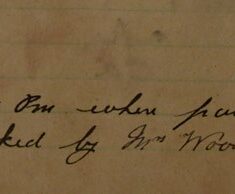 Pm when pa
ked by Mrs Woo